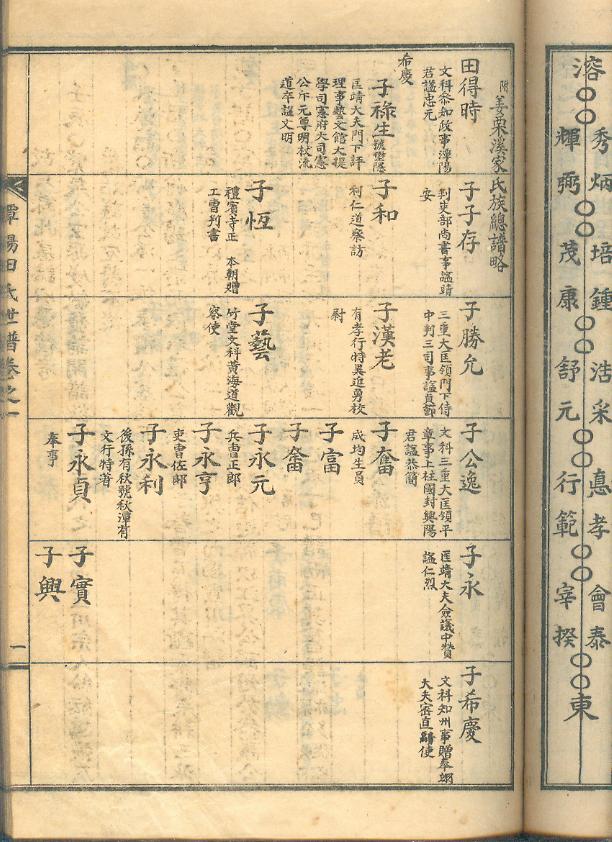 溶○○輝弼○○茂康○○舒元○○行範○○宰揆○○東
秀炳培鍾浩采悳孝會泰
附姜栗溪家氏族總譜略
田得時
文科參知政事潭陽
君諡忠元
子子存
判吏部尚書事諡靖
安
子勝允
三重大匡領門下侍
中判三司事諡貞節
子公逸
文科三重大匡領平
章事上柱國封興陽
君諡恭簡
子永
匡靖大夫僉議中贊
諡仁烈
子希慶
文科知州事贈奉翊
大夫密直副使
希慶
子祿生
號壄隱
匡靖大夫門下評
理事藝文館大提
學司憲府大司憲
公卞元尊明杖流
道卒諡文明
子和
利仁道察訪
子漢老
有孝行特異進勇校
尉
子奮
成均生員
子富
子奮
子恆
禮賓寺正 本朝贈
工曹判書
子藝
竹堂文科黃海道觀
察使
子永元
兵曹正郎
子永亨
吏曹佐郎
子永利
後孫有秋號秋潭有
文行特著
子永貞
奉事
子實
子興
潭陽田氏世譜卷之一
一